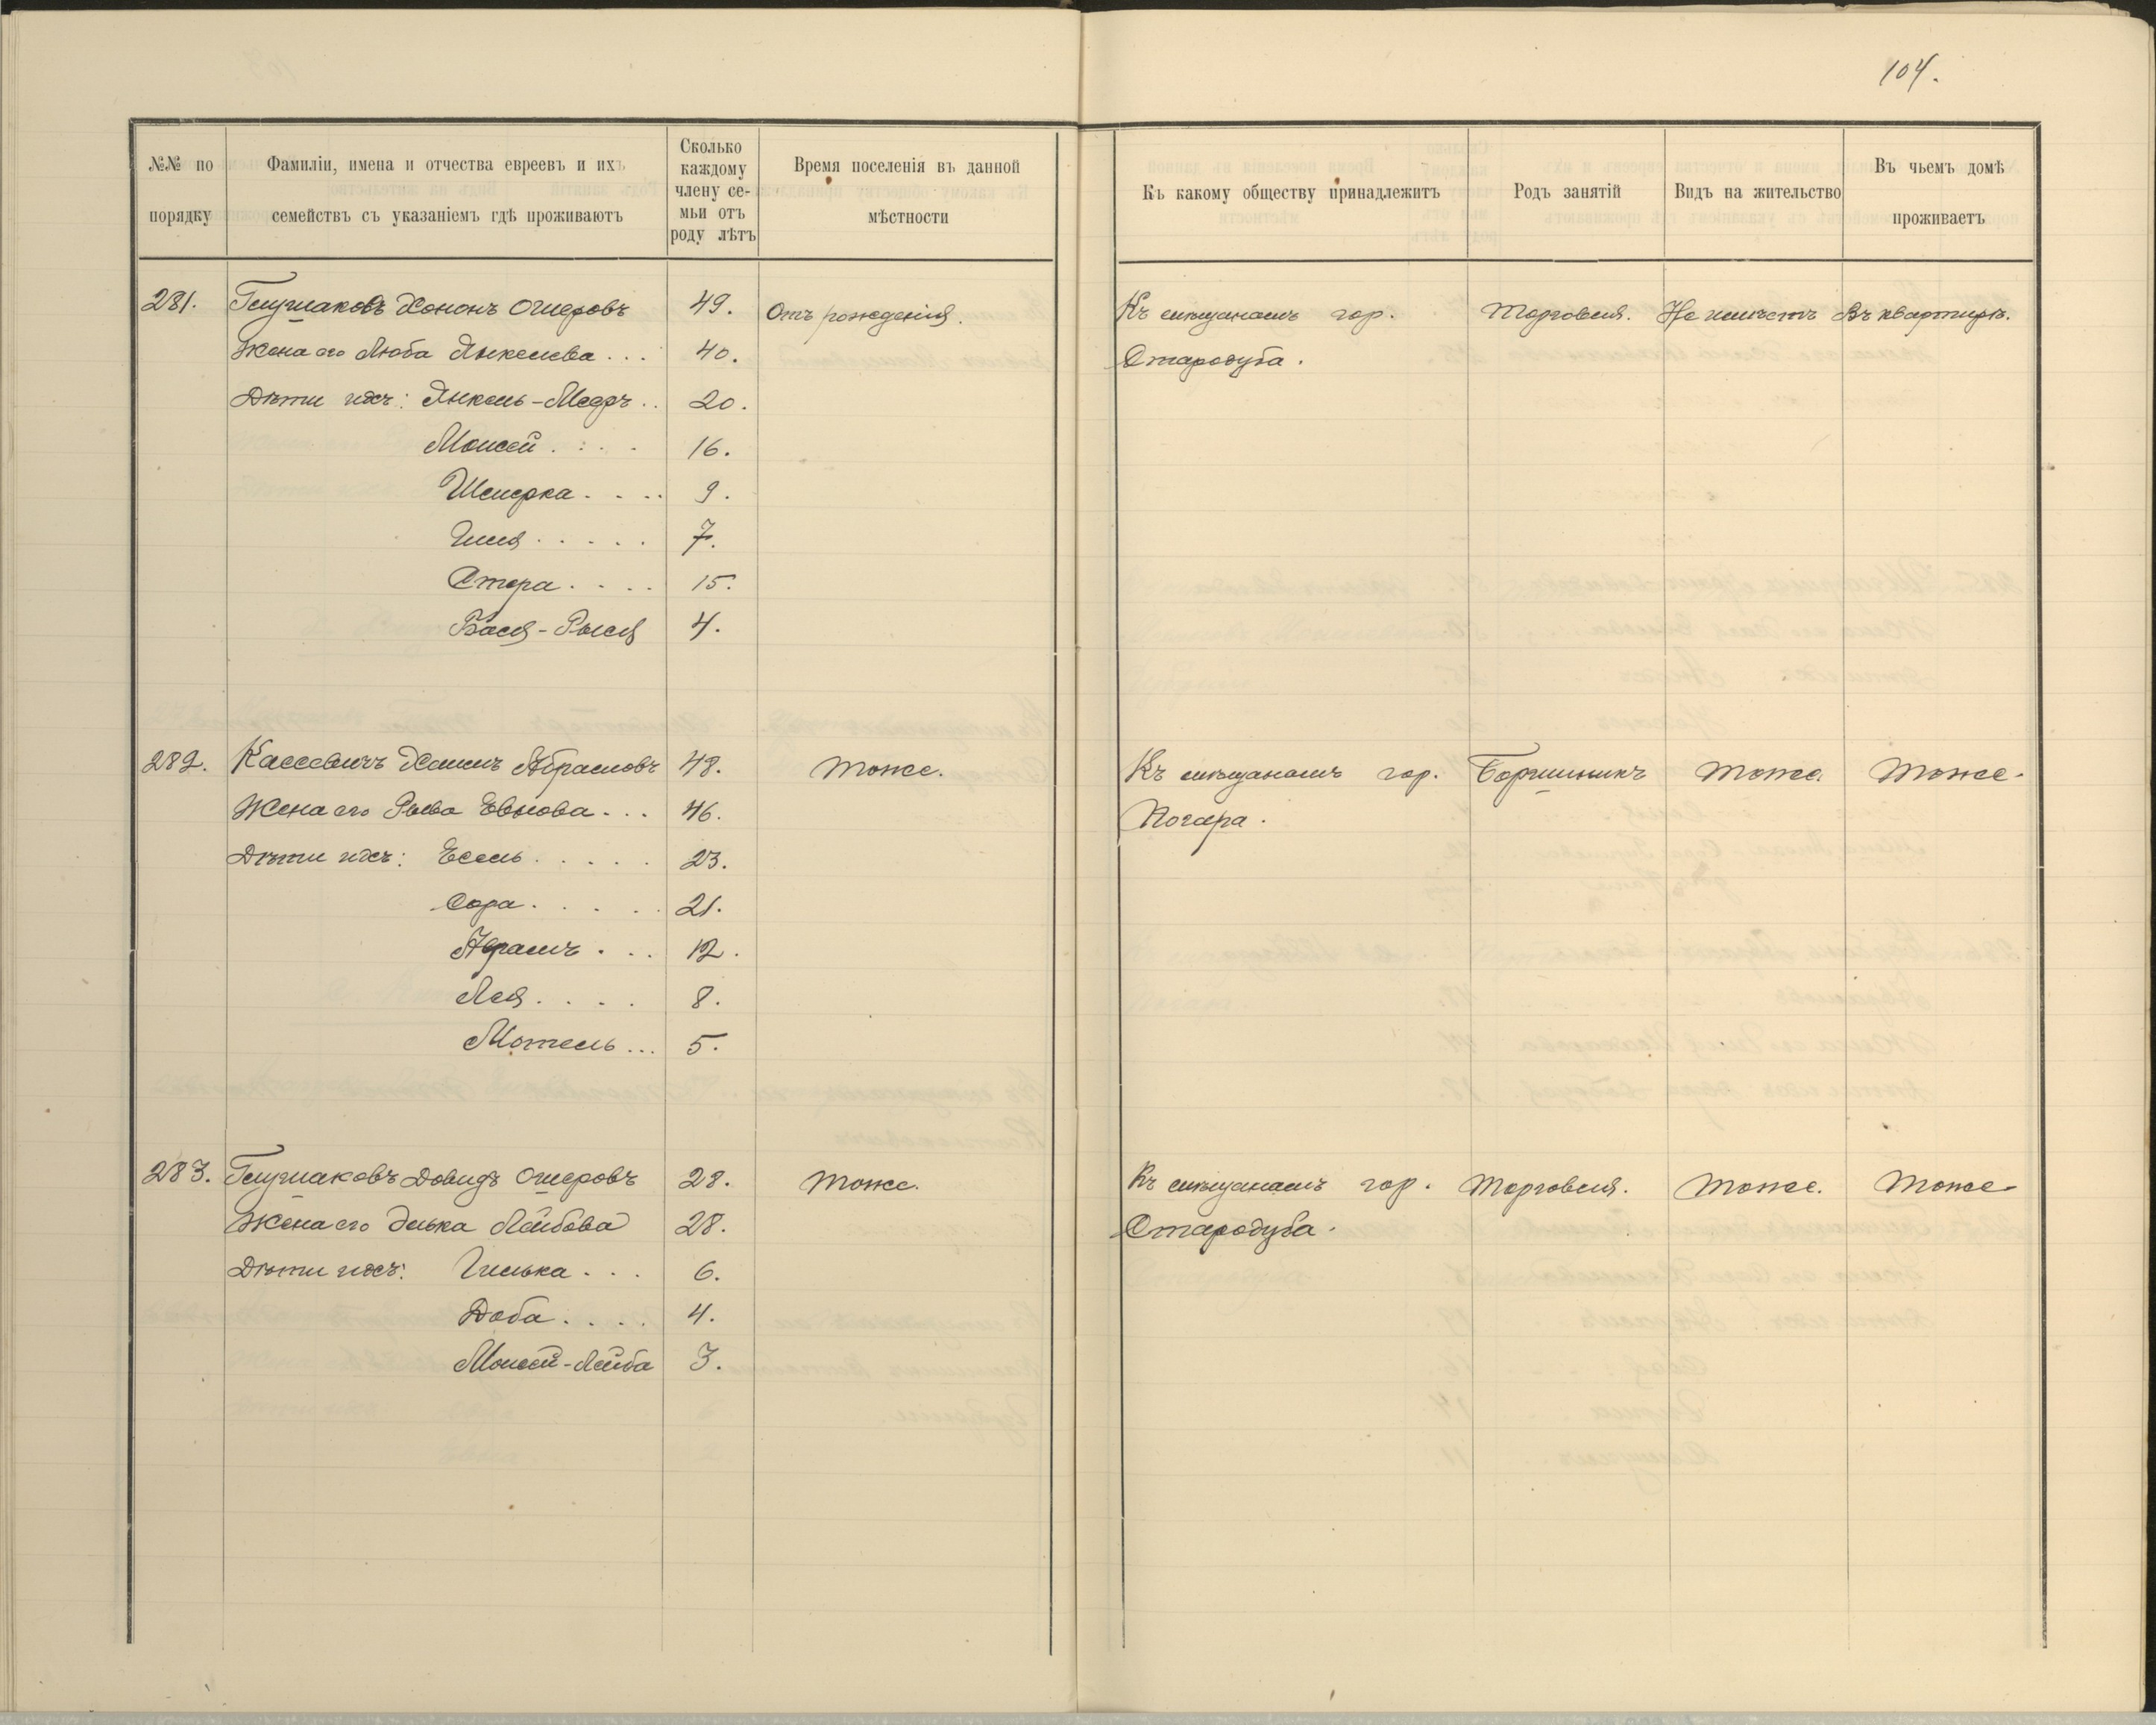 104.
№№ по порядку
Фамиліи, имена и отчества евреевъ и ихъ семействъ съ указаніемъ гдѣ проживаютъ
Сколько каждому члену семьи отъ роду лѣтъ
Время поселенія въ данной мѣстности
Къ какому обществу принадлежитъ
Родъ занятій
Видъ на жительство
Въ чьемъ домѣ проживаетъ
281. Глушаковъ Хононъ Ошеровъ 49. Отъ рожденія. Къ мѣщанамъ гор. Торговля. Не имѣетъ Въ квартирѣ.
Жена его Люба Янкелева . . . 40. Стародуба.
Дѣти ихъ: Янкель-Меерь . . 20.
Моисей . . . . 16.
9.
7.
15.
Бася- 4.
282. Хаимъ Абрамовъ 48. Тоже. Къ мѣщанамъ гор. Тоже. Тоже.
Жена его Рыва . . . 46. Погара.
Дѣти ихъ: Есель . . . . . 23.
Сора . . . . . 21.
Абрамъ . . . 12.
Лея . . . . 8.
Мотель . . . 5.
283. Глушаковъ Довидъ Ошеровъ 28. Тоже. Къ мѣщанамъ гор. Торговля. Тоже. Тоже
Жена его Элька Лейбова 28. Стародуба.
Дѣти ихъ: Гилька . . . 6.
Доба . . . . 4.
Моисей-Лейба 3.